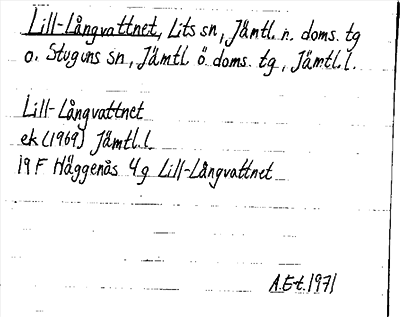 Lill-Långvattnet, Lits sn, Jämtl. n. doms. tg
o. Stuguns sn, Jämtl. ö. doms. tg, Jämtl. l.
Lill-Långvattnet
ek (1969) Jämtl. l.
19 F Häggenås 4g Lill-Långvattnet
A.E-t. 1971